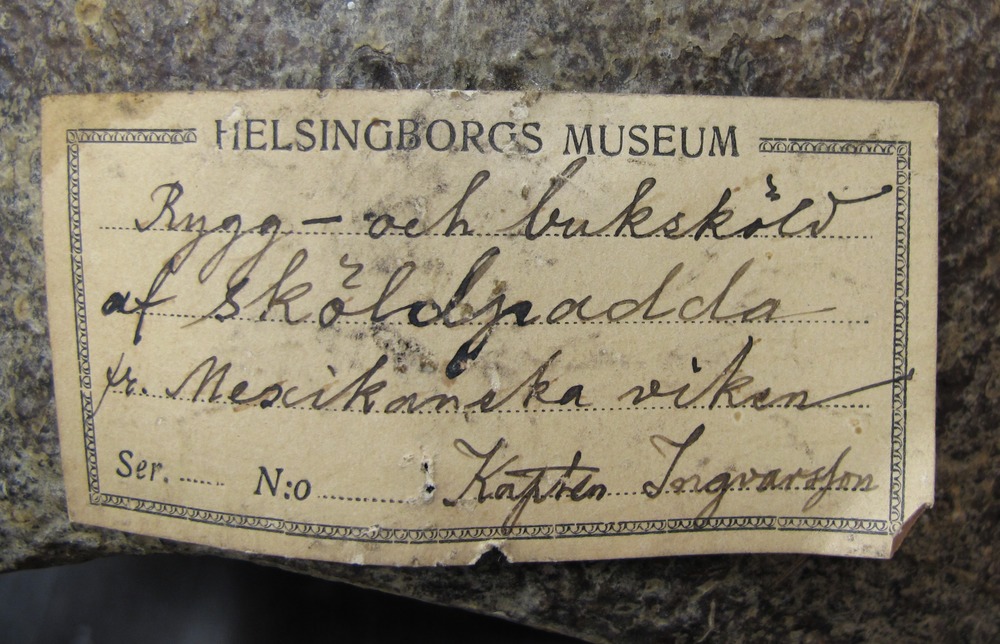 HELSINGBORGS MUSEUM
Rygg- och buksköld
af sköldpadda
fr. Mexikanska viken
Ser. ...... N:o ............ Kapten Ingvarsson